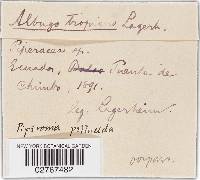 Albugo tropica Lagerh.
Piperacea sp.
Ecuador, Puente de
Chimbo, 1891.
leg. Lagerheim.
Piperomia pellucida
NEW YORK BOTANICAL GARDEN
02767482